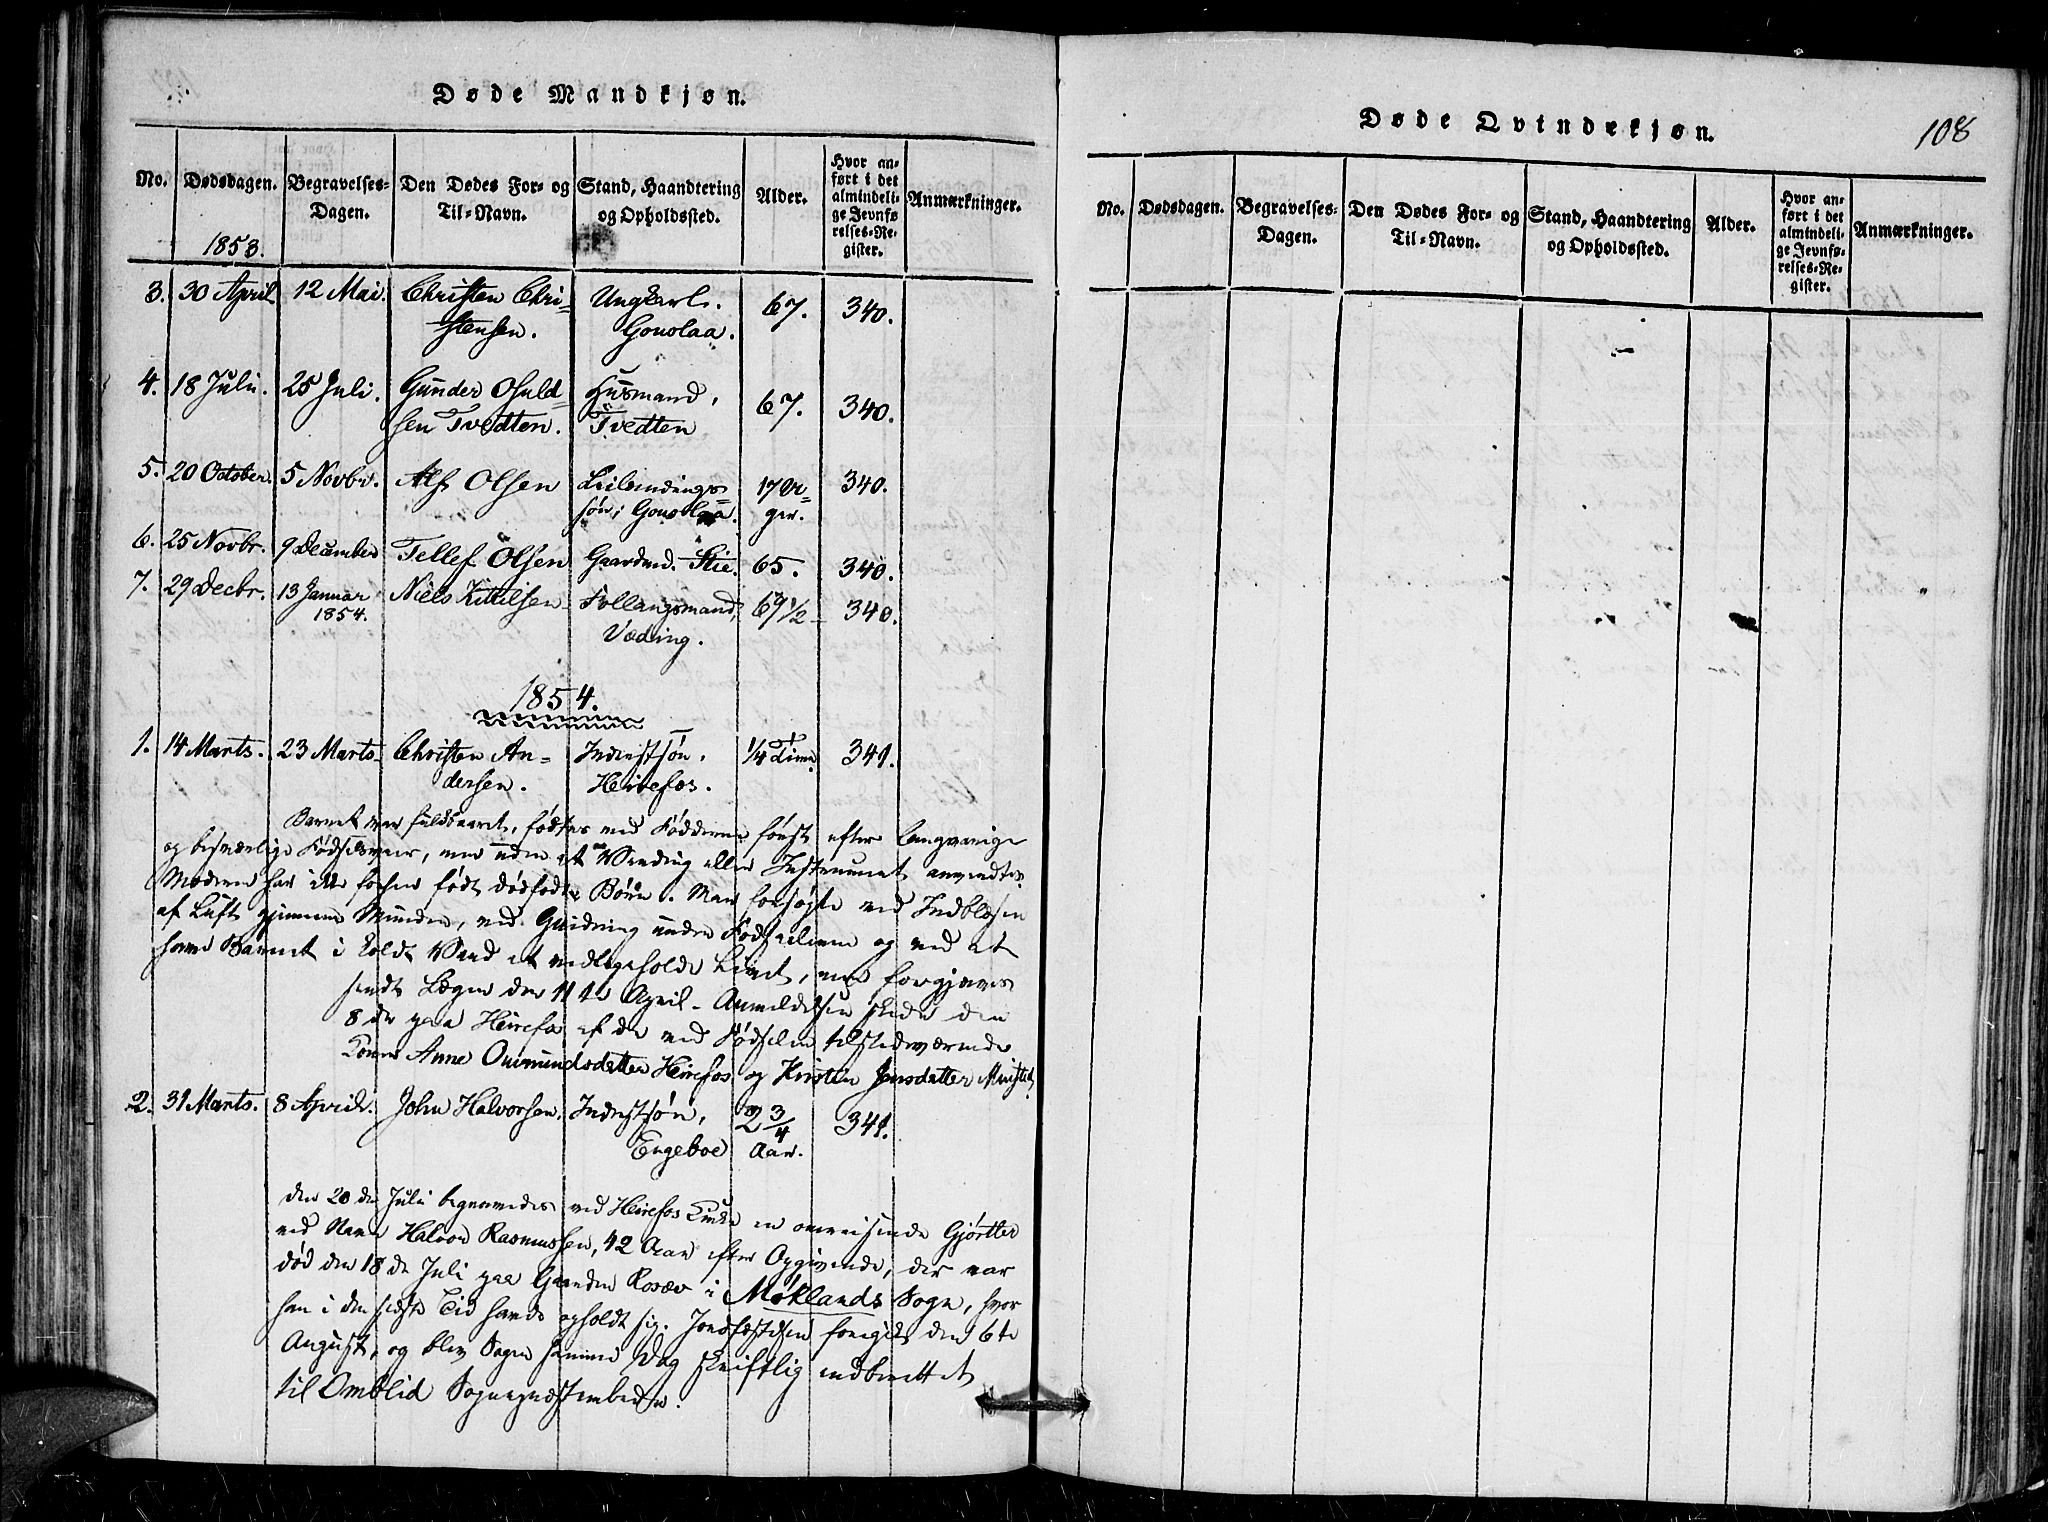 Døde Mandkjøn.
No. Dødsdagen. Begravelses-Dagen. Den Dødes For- og Til-Navn. Stand, Haandtering og Opholdssted. Alder. Hvor anført i det almindelige Jevnførelses-Register. Anmærkninger.
1853.
3. 30 April 12 Mai. Christen Chri- Ungkarl. 67. 340.
stensen. Gouslaa.
4. 18 Juli. 25 Juli. Gunder Osuld- Husmand, 67. 340.
sen Tvedten. Tvedten
5. 20 October. 5 Novbr. Alf Olsen Leilændings- 17 340.
søn, Gouslaa.
6. 25 Novbr. 9 December Tellef Olsen Gaardmd. 65. 340.
7. 29 Decbr. 13 Januar Niels Kittilsen Follaugsmand, 69 1/2 340.
1854. Væding.
1854.
1. 14 Marts. 23 Marts. Christen An- Inderstsøn. 1/4 Time. 341.
dersen. Heirefos.
Barnet var fuldbaaret, fødtes med Fødderne først efter langvarige
og besværlige Fødselsveer, men uden at Vending eller Instrument anvendtes.
Moderen har ikke forhen født dødfødte Børn. Man forsøgte ved Indblæsen
af Luft gjennem Munden, ved Gnidning under Fødselerne og ved at
Barnet i koldt Vand at vedligeholde Livet, men forgjæves
sendt Lægen den 11te April. Anmeldelsen skede den
8de paa Heirefos af de ved Fødselen tilstedværende
Koner Anne Oumundsdatter Heirefos og Kirsten Jensdatter
2. 31 Marts. 8 April. John Halvorsen, Inderstsøn, 2 3/4 341.
Engeboe Aar.
den 20de Juli begravedes ved Heirefos Kirke en omreisende Gjørtler
ved Navn Halvor Rasmussen, 42 Aar efter Opgivende, der var
død den 18de Juli paa Gaarden Rosæv i Møklands Sogn, hvor
han i den sidste Tid havde opholdt sig. Jordfæstelsen foregik den 6te
August, og blev Sagen samme Dag skriftlig indberettet
til Omblid Sognepræstembede.
Døde Qvindekjøn.
108
No. Dødsdagen. Begravelses-Dagen. Den Dødes For- og Til-Navn. Stand, Haandtering og Opholdssted. Alder. Hvor anført i det almindelige Jevnførelses-Register. Anmærkninger.